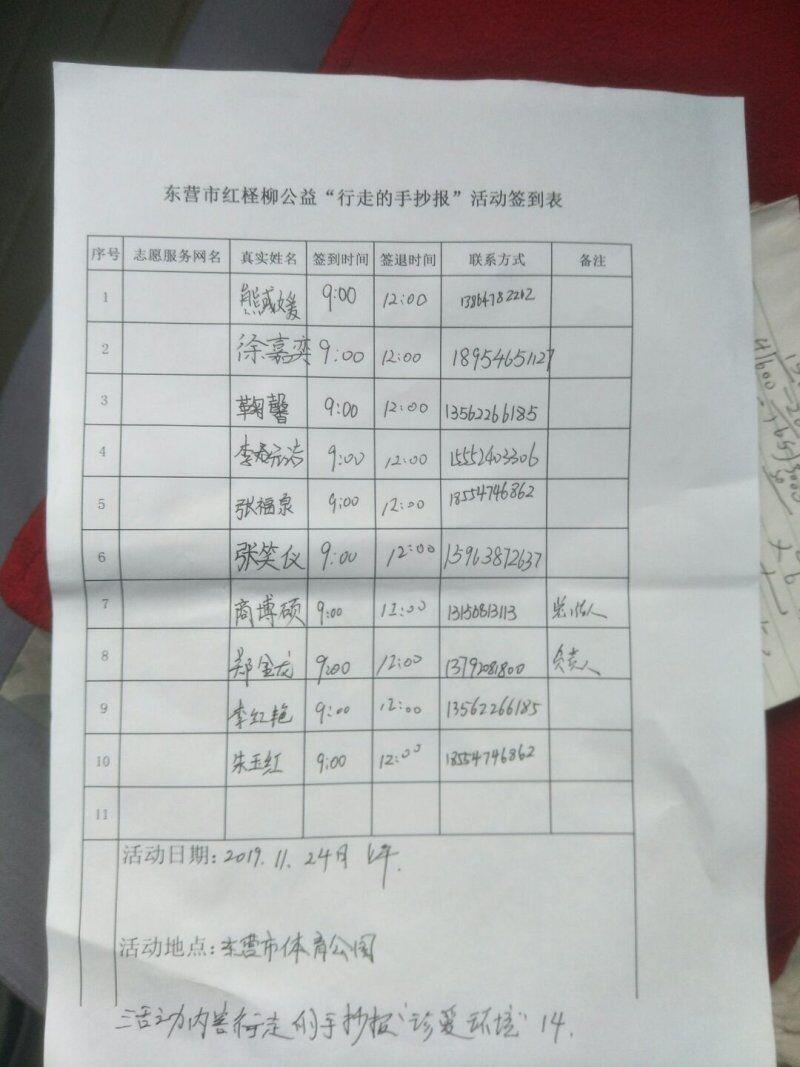 东营市红柽柳公益“行走的手抄报”活动签到表
序号 志愿服务网名 真实姓名 签到时间 签退时间 联系方式 备注
1 熊彧媛 9:00 12:00 13864782212
2 徐嘉奕 9:00 12:00 18954651127
3 鞠馨 9:00 12:00 13562266185
4 李 浩 9:00 12:00 15552403306
5 张福泉 9:00 12:00 18554746862
6 张笑仪 9:00 12:00 15963872637
7 商博硕 9:00 12:00 13150813113
8 郑金龙 9:00 12:00 13792081800 负责人
9 李红艳 9:00 12:00 13562266185
10 朱玉红 9:00 12:00 18554746862
11
活动日期:2019.11.24日 上午.
活动地点:东营市体育公园
活动内容行走的手抄报“珍爱环境”14.